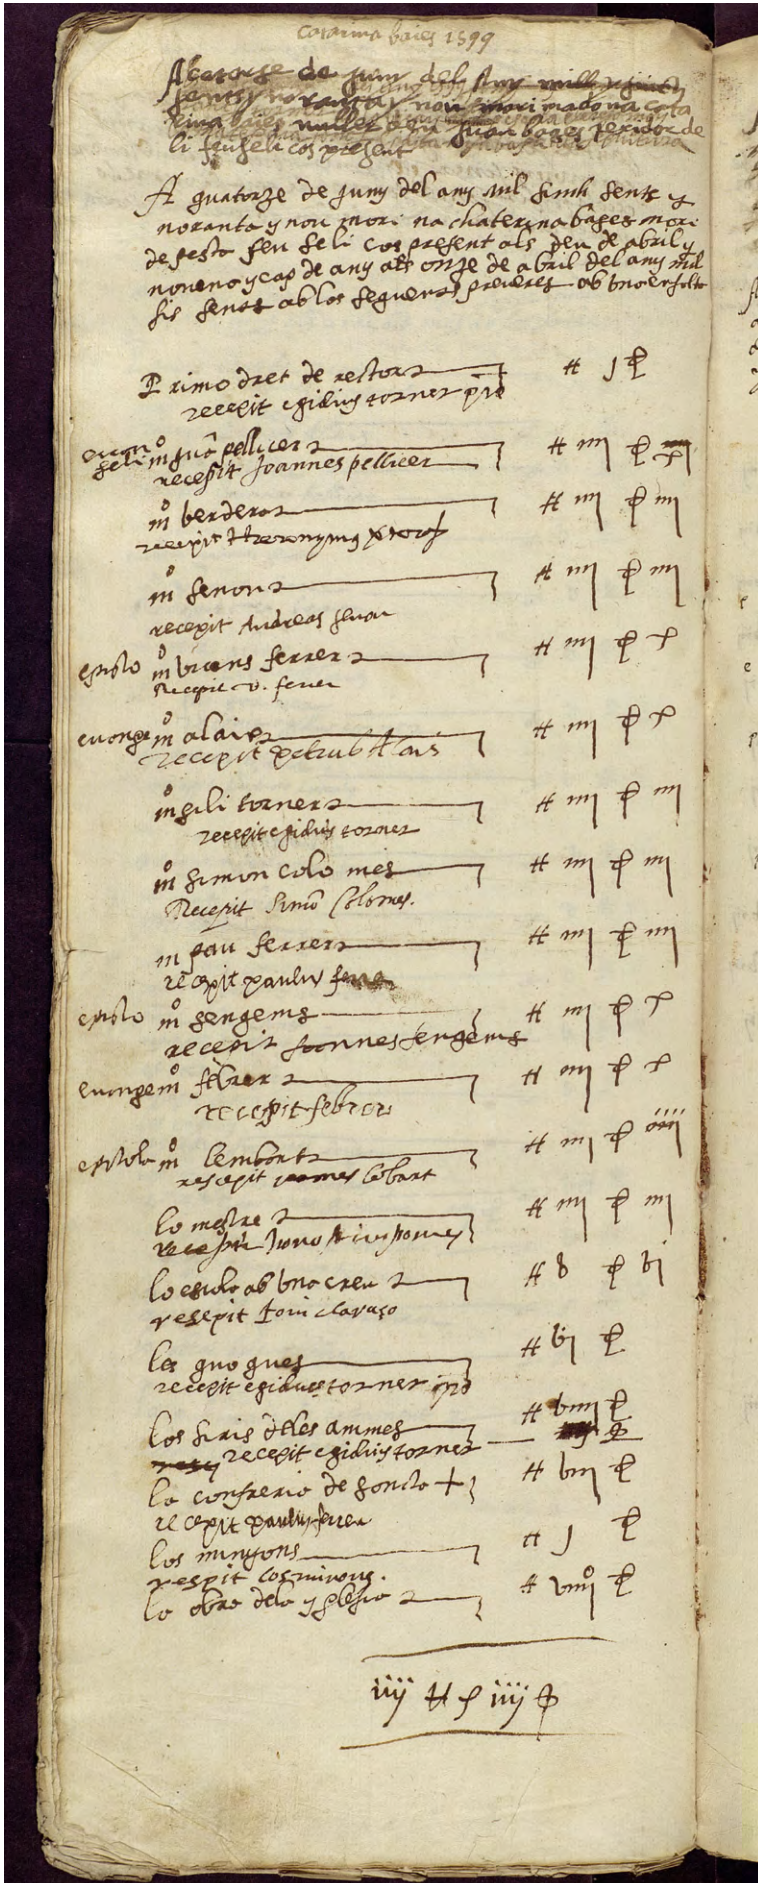 Catarina baies 1599
A catorse de juny del any mill y sinch
sents y noranta y nou mori madona cata
rina baies muller den juan bages texidor de
li feu feli cos present
A quatorze de juny del any mil sinch sents y
noranta y nou mori na chaterina bages mori
de pesta feu se li cos present als deu de abril y
novena y cap de any als onze de abril del any mil
sis sents ab los seguents preveres ab una ensolta
Primo dret de rector # j
recepit egidius torner pro
evangeli mo pellicer # iiij
recepit Joannes pellicer
mo berdera # iiij iiij
recepit Hieronymus
mo senou # iiij iiij
recepit Andreas senou
episto mo vicens ferrer # iiij
Recepit v. ferrer
evange mo alais # iiij
recepit petrus Alais
mo gili torner # iiij iiij
recepit egidius torner
mo simon colomes # iiij iiij
Recepit Simo Colomes.
m pau ferrer # iiij iiij
recepit paulus ferrer
episto mo sengems # iiij
recepit Joannes sengems
evange mo febrer # iiij
recepit febrer
epistola mo lembart # iiij
resepit lobart
lo mestre # iiij iiij
recepit
lo escola ab una creu # 8 bj
resepit
les quogues # bj
recepit egidius torner pro
los siris de les animes # biiij
recepit egidius torner
la confreria de sancta + # biij
recepit paulus ferrer
los minyons # j
respit cosminons.
la obra dela yglesia # viiij
iiij # iiij